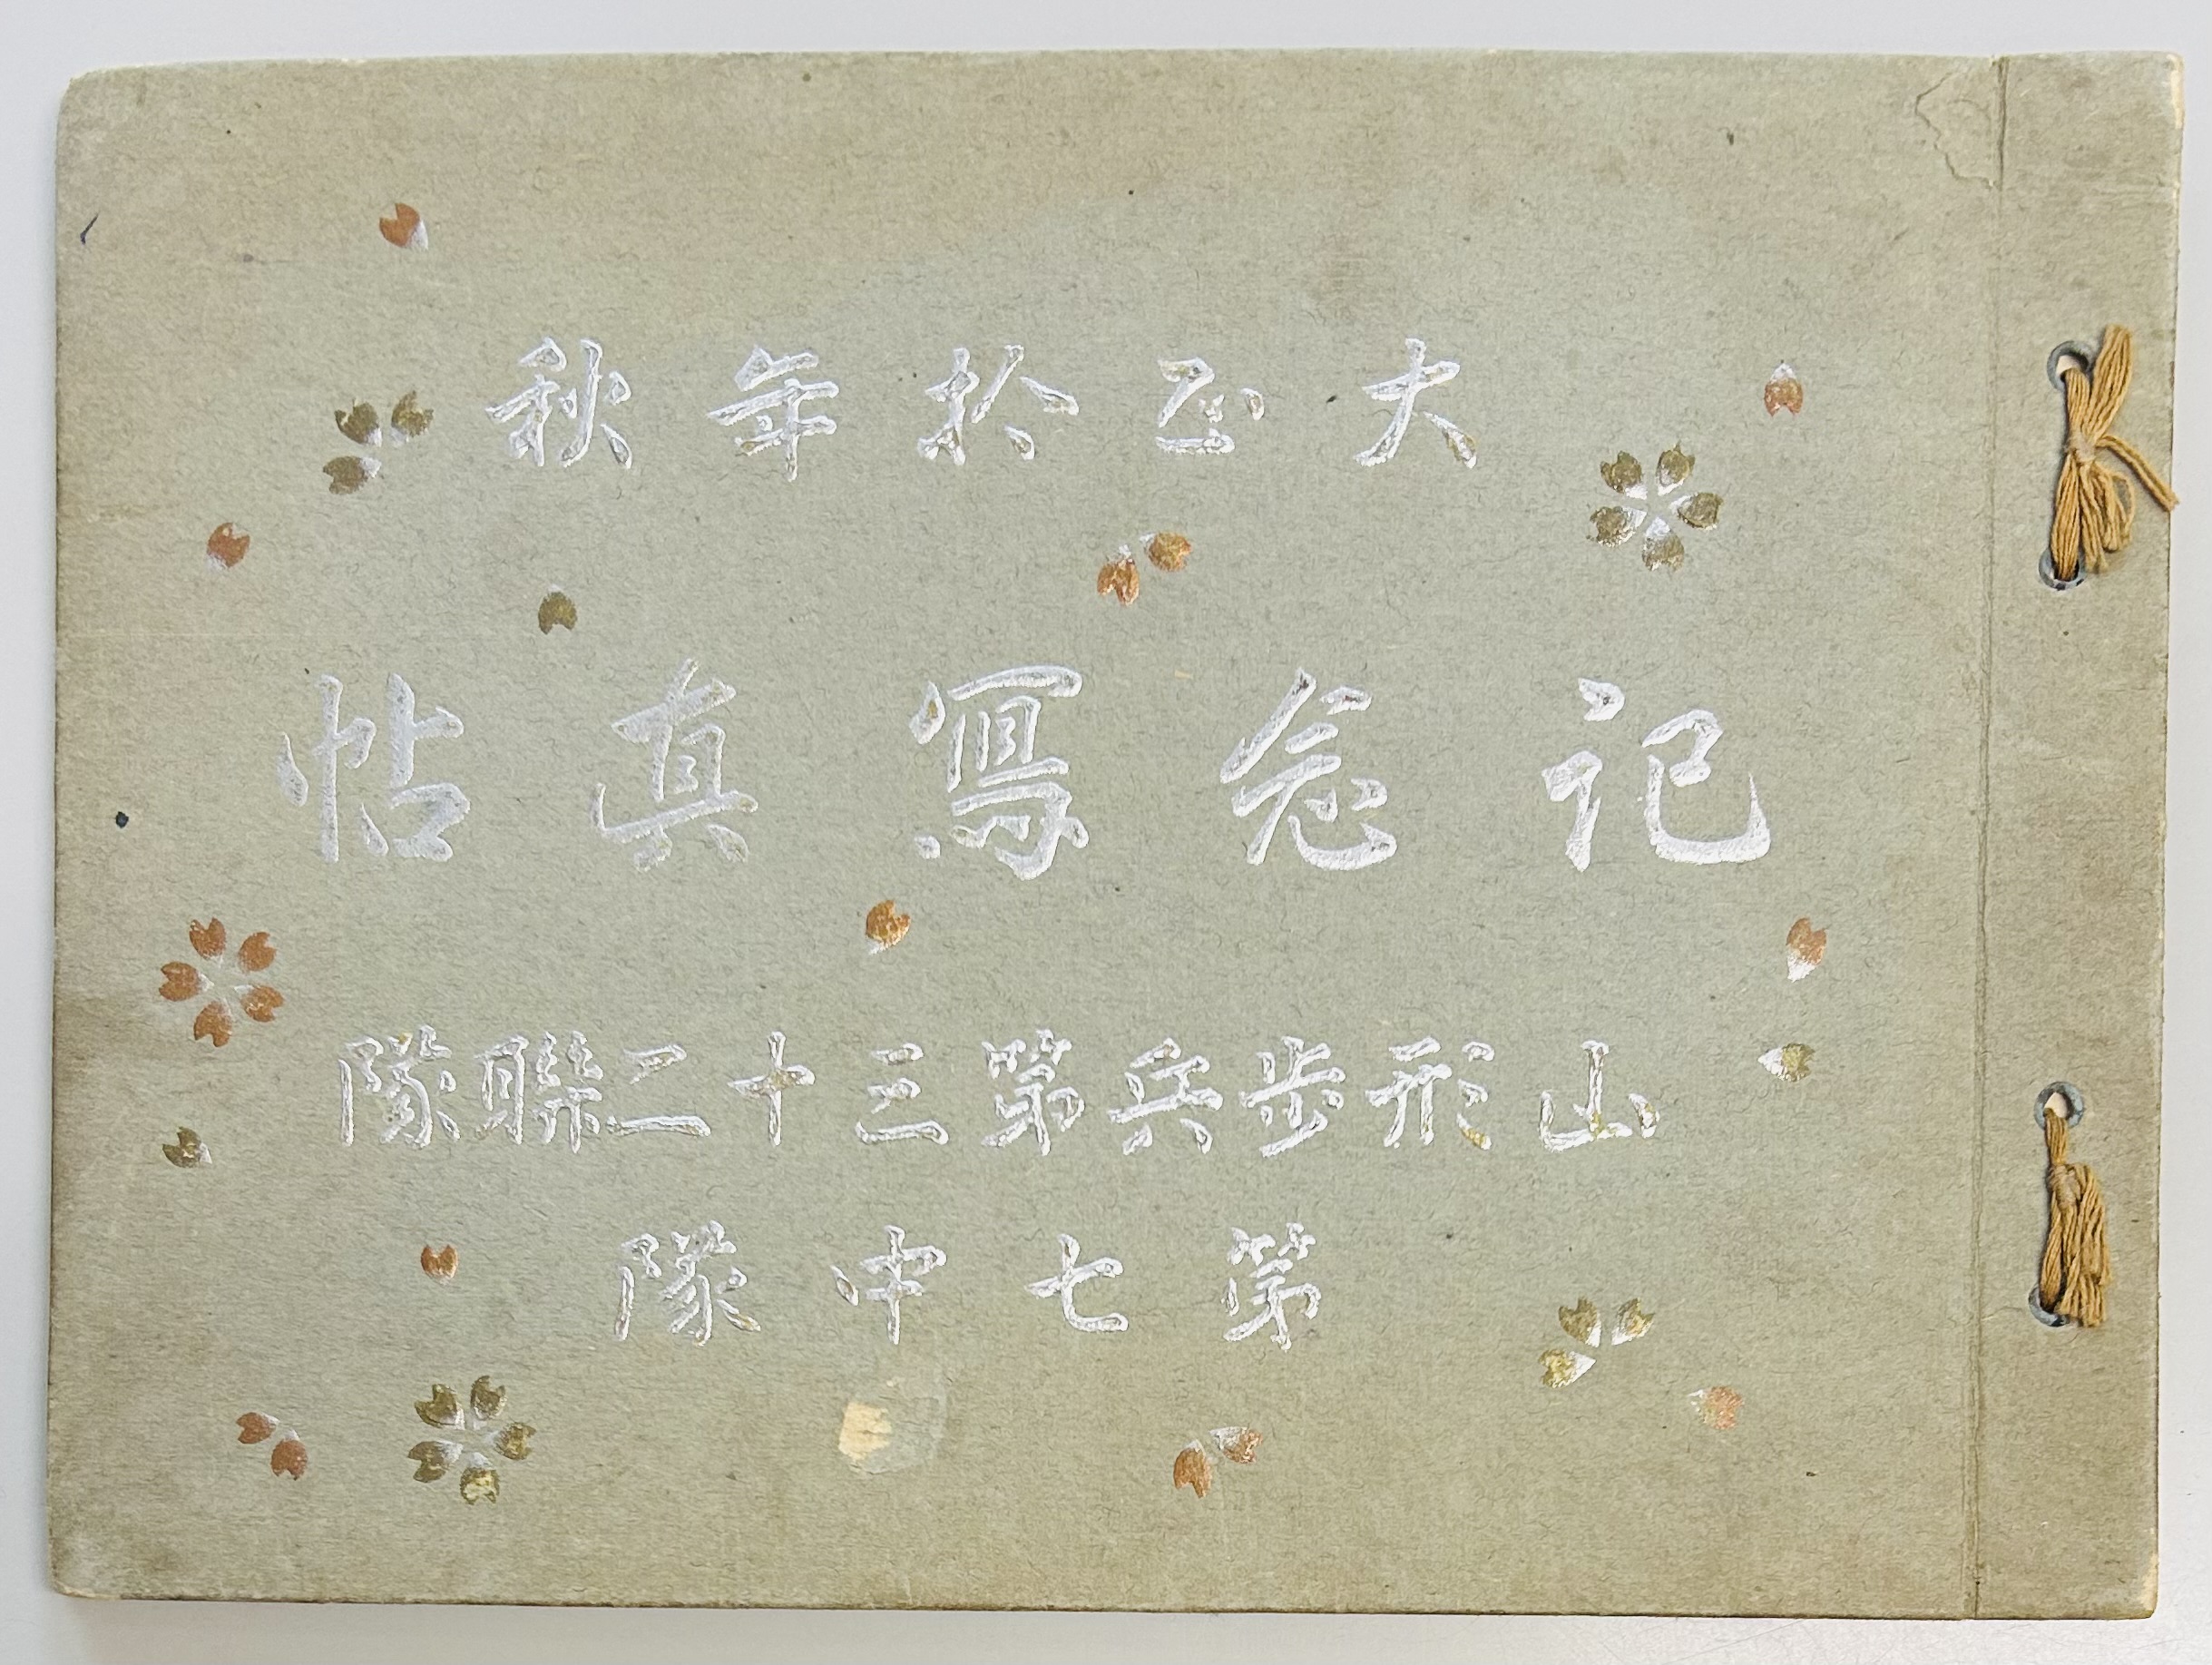 大正拾年秋
記念寫真帖
山形歩兵第三十二聯隊
第七中隊